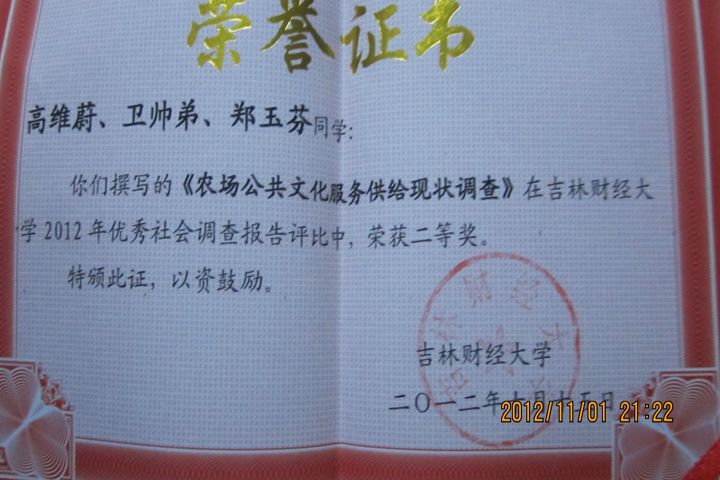 荣誉证书
高维蔚、卫帅弟、郑玉芬同学：
你们撰写的《农场公共文化服务供给现状调查》在吉林财经大
学2012年优秀社会调查报告评比中，荣获二等奖。
特颁此证，以资鼓励。
吉林财经大学
吉林财经大学
二〇一二年十月十五日
2012/11/01 21:22